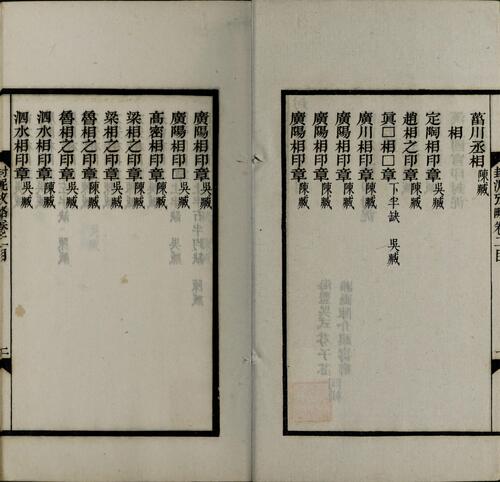 菑川丞相陳臧
相
定陶相印章吳臧
趙相之印章陳臧
眞囗相囗章下半缺 吳臧
廣川相印章陳臧
廣陽相印章陳臧
廣陽相印章陳臧
廣陽相印章陳臧
封泥攷略卷二目
廣陽相印章吳臧
廣陽相印囗吳臧
高密相印章吳臧
梁相之印章陳臧
梁相之印章吳臧
魯相之印章陳臧
魯相之印章吳臧
泗水相印章陳臧
泗水相印章吳臧
封泥攷略卷二目
二